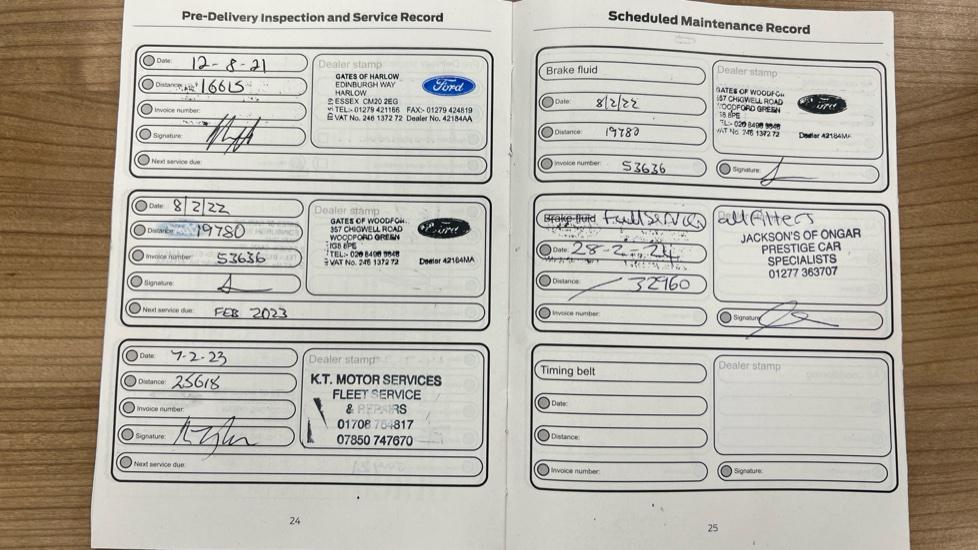 Pre-Delivery Inspection and Service Record
Date: 12-8-21
Distance: 16615
Invoice number:
Signature:
Next service due:
Dealer stamp
GATES OF HARLOW
EDINBURGH WAY
HARLOW
ESSEX CM20 2EG
TEL:- 01279 421166 FAX:- 01279 424819
VAT No. 246 1372 72 Dealer No. 42184AA
Ford
Date: 8/2/22
Distance: 19780
Invoice number: 53636
Signature:
Next service due: FEB 2023
Dealer stamp
GATES OF WOODFO
357 CHIGWELL ROAD
WOODFORD GREEN
IG8 8PE
TEL:- 020 8498
VAT No. 246 1372 72 Dealer 42184MA
Ford
Date: 7-2-23
Distance: 25618
Invoice number:
Signature:
Next service due:
Dealer stamp
K.T. MOTOR SERVICES
FLEET SERVICE
& REPAIRS
01708 817
07850 747670
24
Scheduled Maintenance Record
Brake fluid
Date: 8/2/22
Distance: 19780
Invoice number: 53636
Dealer stamp
GATES OF WOODFO
357 CHIGWELL ROAD
WOODFORD GREEN
8PE
TEL:- 020 8498
VAT No. 246 1372 72 Dealer 42184MA
Ford
Signature:
Brake fluid Full Service all filters
Date: 28-2-24
Distance: 32960
Invoice number:
JACKSON'S OF ONGAR
PRESTIGE CAR
SPECIALISTS
01277 363707
Signature:
Timing belt
Date:
Distance:
Invoice number:
Dealer stamp
Signature:
25